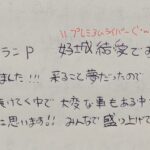 \\プレミアムライバーぐ
ランP 好城結愛でお
ました!!! 来ること夢だったので
頂いてく中で大変な事もある中
に思います!! みんなで盛り上げて